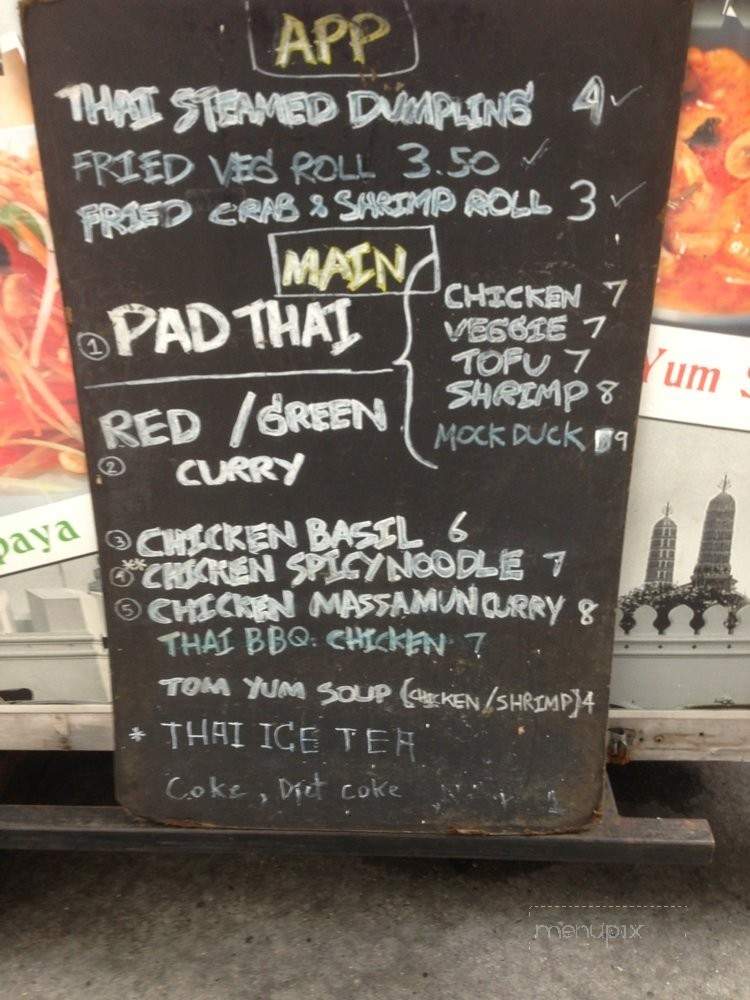 APP
THAI STEAMED DUMPLING 4 ✓
FRIED VEG ROLL 3.50 ✓
FRIED CRAB & SHRIMP ROLL 3 ✓
MAIN
① PAD THAI
CHICKEN 7
VEGGIE 7
TOFU 7
SHRIMP 8
MOCK DUCK 9
RED / GREEN
② CURRY
③ CHICKEN BASIL 6
④ ** CHICKEN SPICY NOODLE 7
⑤ CHICKEN MASSAMUN CURRY 8
THAI BBQ CHICKEN 7
TOM YUM SOUP {CHICKEN/SHRIMP} 4
* THAI ICE TEA
Coke, Diet coke
paya
Yum S
menupix